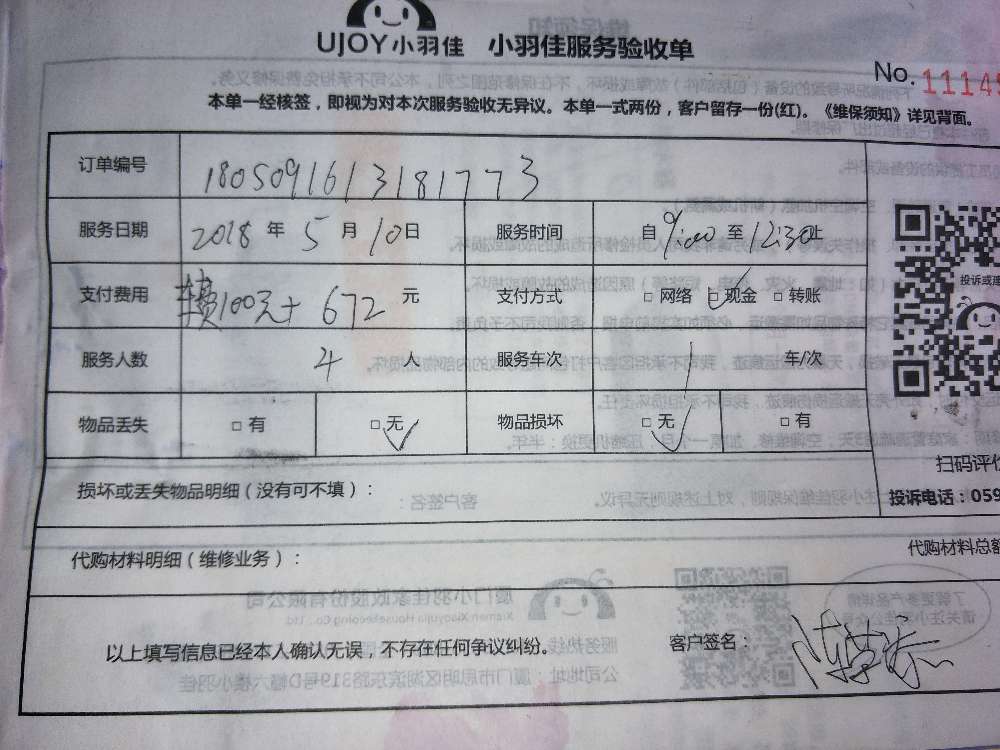 UJOY小羽佳 小羽佳服务验收单
No. 11145
本单一经核签，即视为对本次服务验收无异议。本单一式两份，客户留存一份(红)。《维保须知》详见背面。
订单编号 1805091613181773
服务日期 2018 年 5 月 10 日 服务时间 自 9:00 至 12:30 止
支付费用 车费100元+ 672 元 支付方式 □ 网络 □ 现金 □ 转账
投诉或建
服务人数 4 人 服务车次 1 车/次
物品丢失 □ 有 □ 无 物品损坏 □ 无 □ 有
扫码评价
损坏或丢失物品明细（没有可不填）：
投诉电话：059
代购材料明细（维修业务）：
代购材料总额
以上填写信息已经本人确认无误，不存在任何争议纠纷。
客户签名：